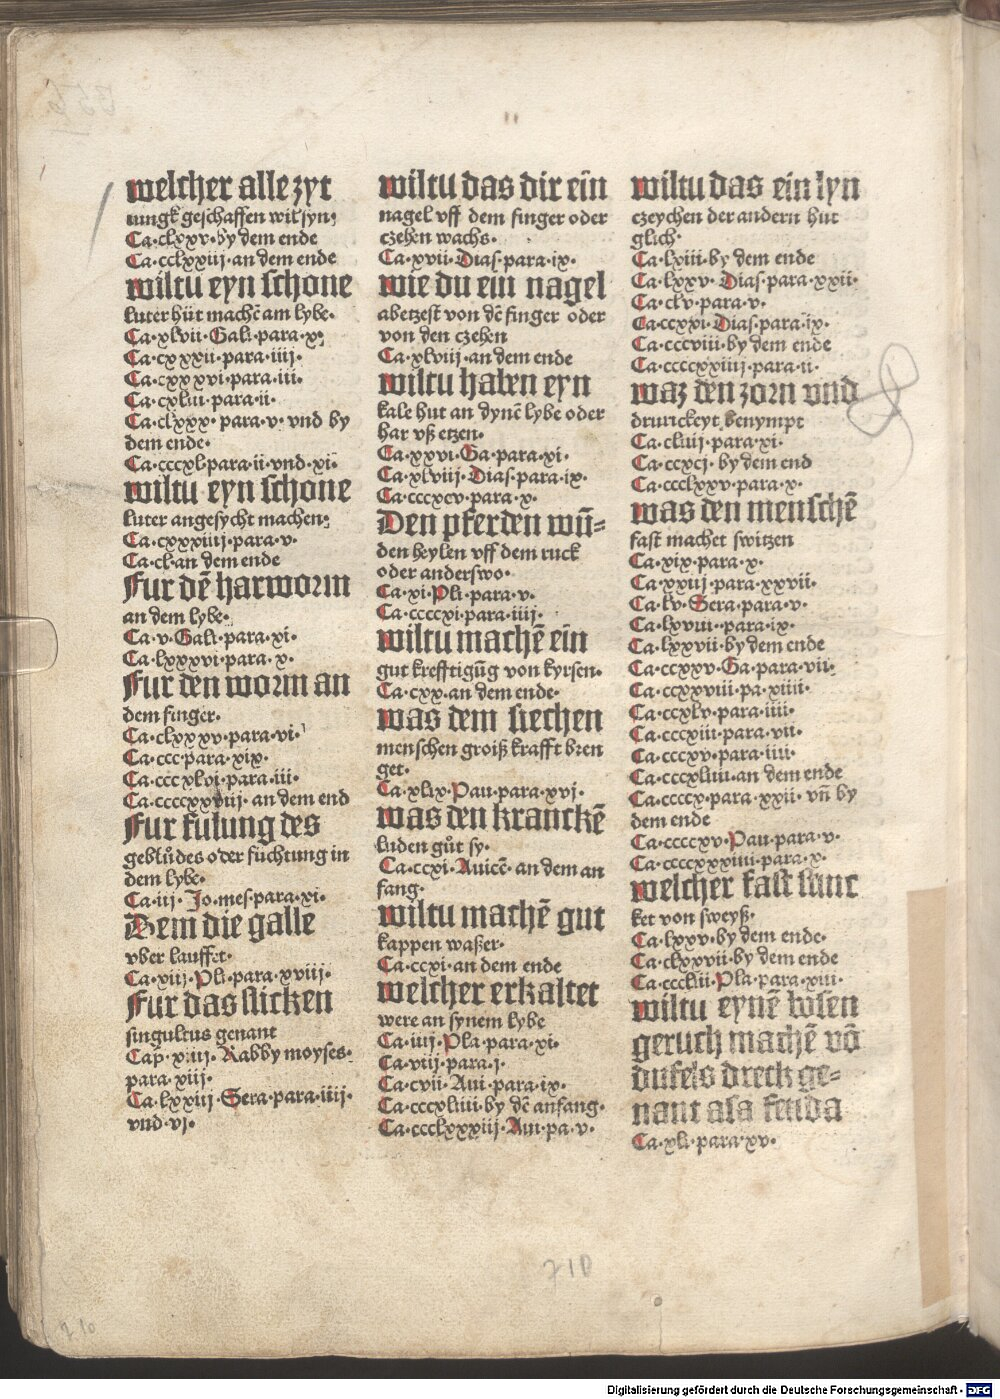 welcher alle zyt
iungk geschaffen wil syn·
Ca·clxxv·by dem ende
Ca·cclxxiij·an dem ende
wiltu eyn schone
luter hüt machē am lybe·
Ca·xlvii·Gali·para·x·
Ca·cxxxii·para·iiij·
Ca·cxxxvi·para·iii·
Ca·cxliii·para·ii·
Ca·clxxx·para·v·vnd by
dem ende·
Ca·cccxl·para·ii·vnd·xi·
wiltu eyn schone
luter angesycht machen·
Ca·cxxxiiij·para·v·
Ca·cl·an dem ende
Fur dē harworm
an dem lybe·
Ca·v·Gali·para·xi·
Ca·lxxxvi·para·x·
Fur den worm an
dem finger·
Ca·clxxxv·para·vi·
Ca·ccc·para·xix·
Ca·cccxlvi·para·iii·
Ca·ccccxxviij·an dem end
Fur fulung des
geblůdes oder füchtung in
dem lybe·
Ca·iij·Jo·mes·para·xi·
Dem die galle
vber lauffet·
Ca·xiij·Pli·para·xviij·
Fur das slicken
singultus genant
Cap̄·xiiij·Rabby moyses·
para·xiij·
Ca·lxxiij·Sera·para·iiij·
vnd·vj·
wiltu das dir ein
nagel vff dem finger oder
czehen wachs·
Ca·xvii·Dias·para·ix·
wie du ein nagel
abetzest von dē finger oder
von den czehen
Ca·xlviij·an dem ende
wiltu haben eyn
kale hut an dynē lybe oder
har vß etzen·
Ca·xxvi·Ga·para·xi·
Ca·xlviij·Dias·para·ix·
Ca·cccxcv·para·x·
Den pferden wū=
den heylen vff dem ruck
oder anderswo·
Ca·xi·Pli·para·v·
Ca·ccccxi·para·iiij·
wiltu machē ein
gut krefftigūg von kyrsen·
Ca·cxx·an dem ende·
was dem siechen
menschen groiß krafft bren
get·
Ca·xlix·Pau·para·xvj·
was den kranckē
luden gůt sy·
Ca·ccxi·Avicē·an dem an
fang·
wiltu machē gut
kappen waßer·
Ca·ccxi·an dem ende
welcher erkaltet
were an synem lybe
Ca·iiij·Pla·para·xi·
Ca·viij·para·j·
Ca·cvii·Aui·para·ix·
Ca·cccxliiii·by dē anfang·
Ca·ccclxxxiij·Aui·pa·v·
wiltu das ein lyn
czeychen der andern hut
glich·
Ca·lxiii·by dem ende
Ca·lxxv·Dias·para·xxii·
Ca·clv·para·v·
Ca·ccxxi·Dias·para·ix·
Ca·cccviii·by dem ende
Ca·ccccxxiiij·para·ii·
waz den zorn vnd
drurickeyt benympt
Ca·cluij·para·xi·
Ca·ccxcj·by dem end
Ca·ccclxxv·para·x·
was den menschē
fast machet switzen
Ca·xix·para·x·
Ca·xxiij·para·xxvii·
Ca·lv·Sera·para·v·
Ca·lxviii·para·ix·
Ca·lxxvii·by dem ende
Ca·ccxxv·Ga·para·vii·
Ca·ccxxviii·pa·xiiii·
Ca·ccxlv·para·iiii·
Ca·cccxiii·para·vii·
Ca·cccxv·para·iiii·
Ca·cccxliiii·an dem ende
Ca·ccccx·para·xxii·vn̄ by
dem ende
Ca·ccccxv·Pau·para·v·
Ca·ccccxxxiiii·para·x·
welcher fast stinc
ket von sweyß·
Ca·lxxv·by dem ende·
Ca·clxxvii·by dem ende
Ca·cccliii·Pla·para·xiii·
wiltu eynē bosen
geruch machē vō
dufels dreck ge=
nant asa fetida
Ca·xli·para·xv·
710
210
Digitalisierung gefördert durch die Deutsche Forschungsgemeinschaft - DFG